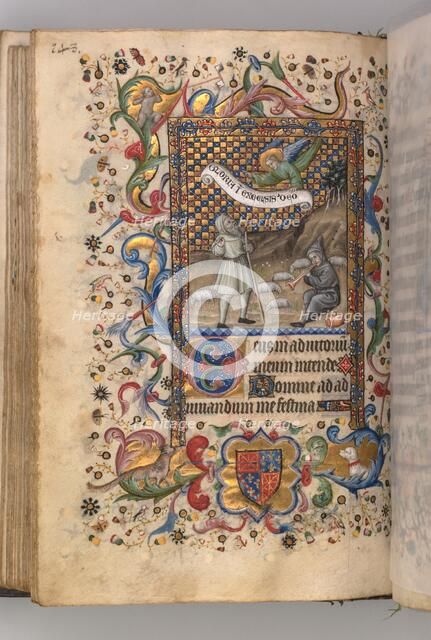 243.
GLORIA I EXCELSIS DEO
Deus in adiutoriū
meum intende
Domine ad ad
iuuandum me festina
Heritage
Heritage
Heritage
Heritage
Heritage